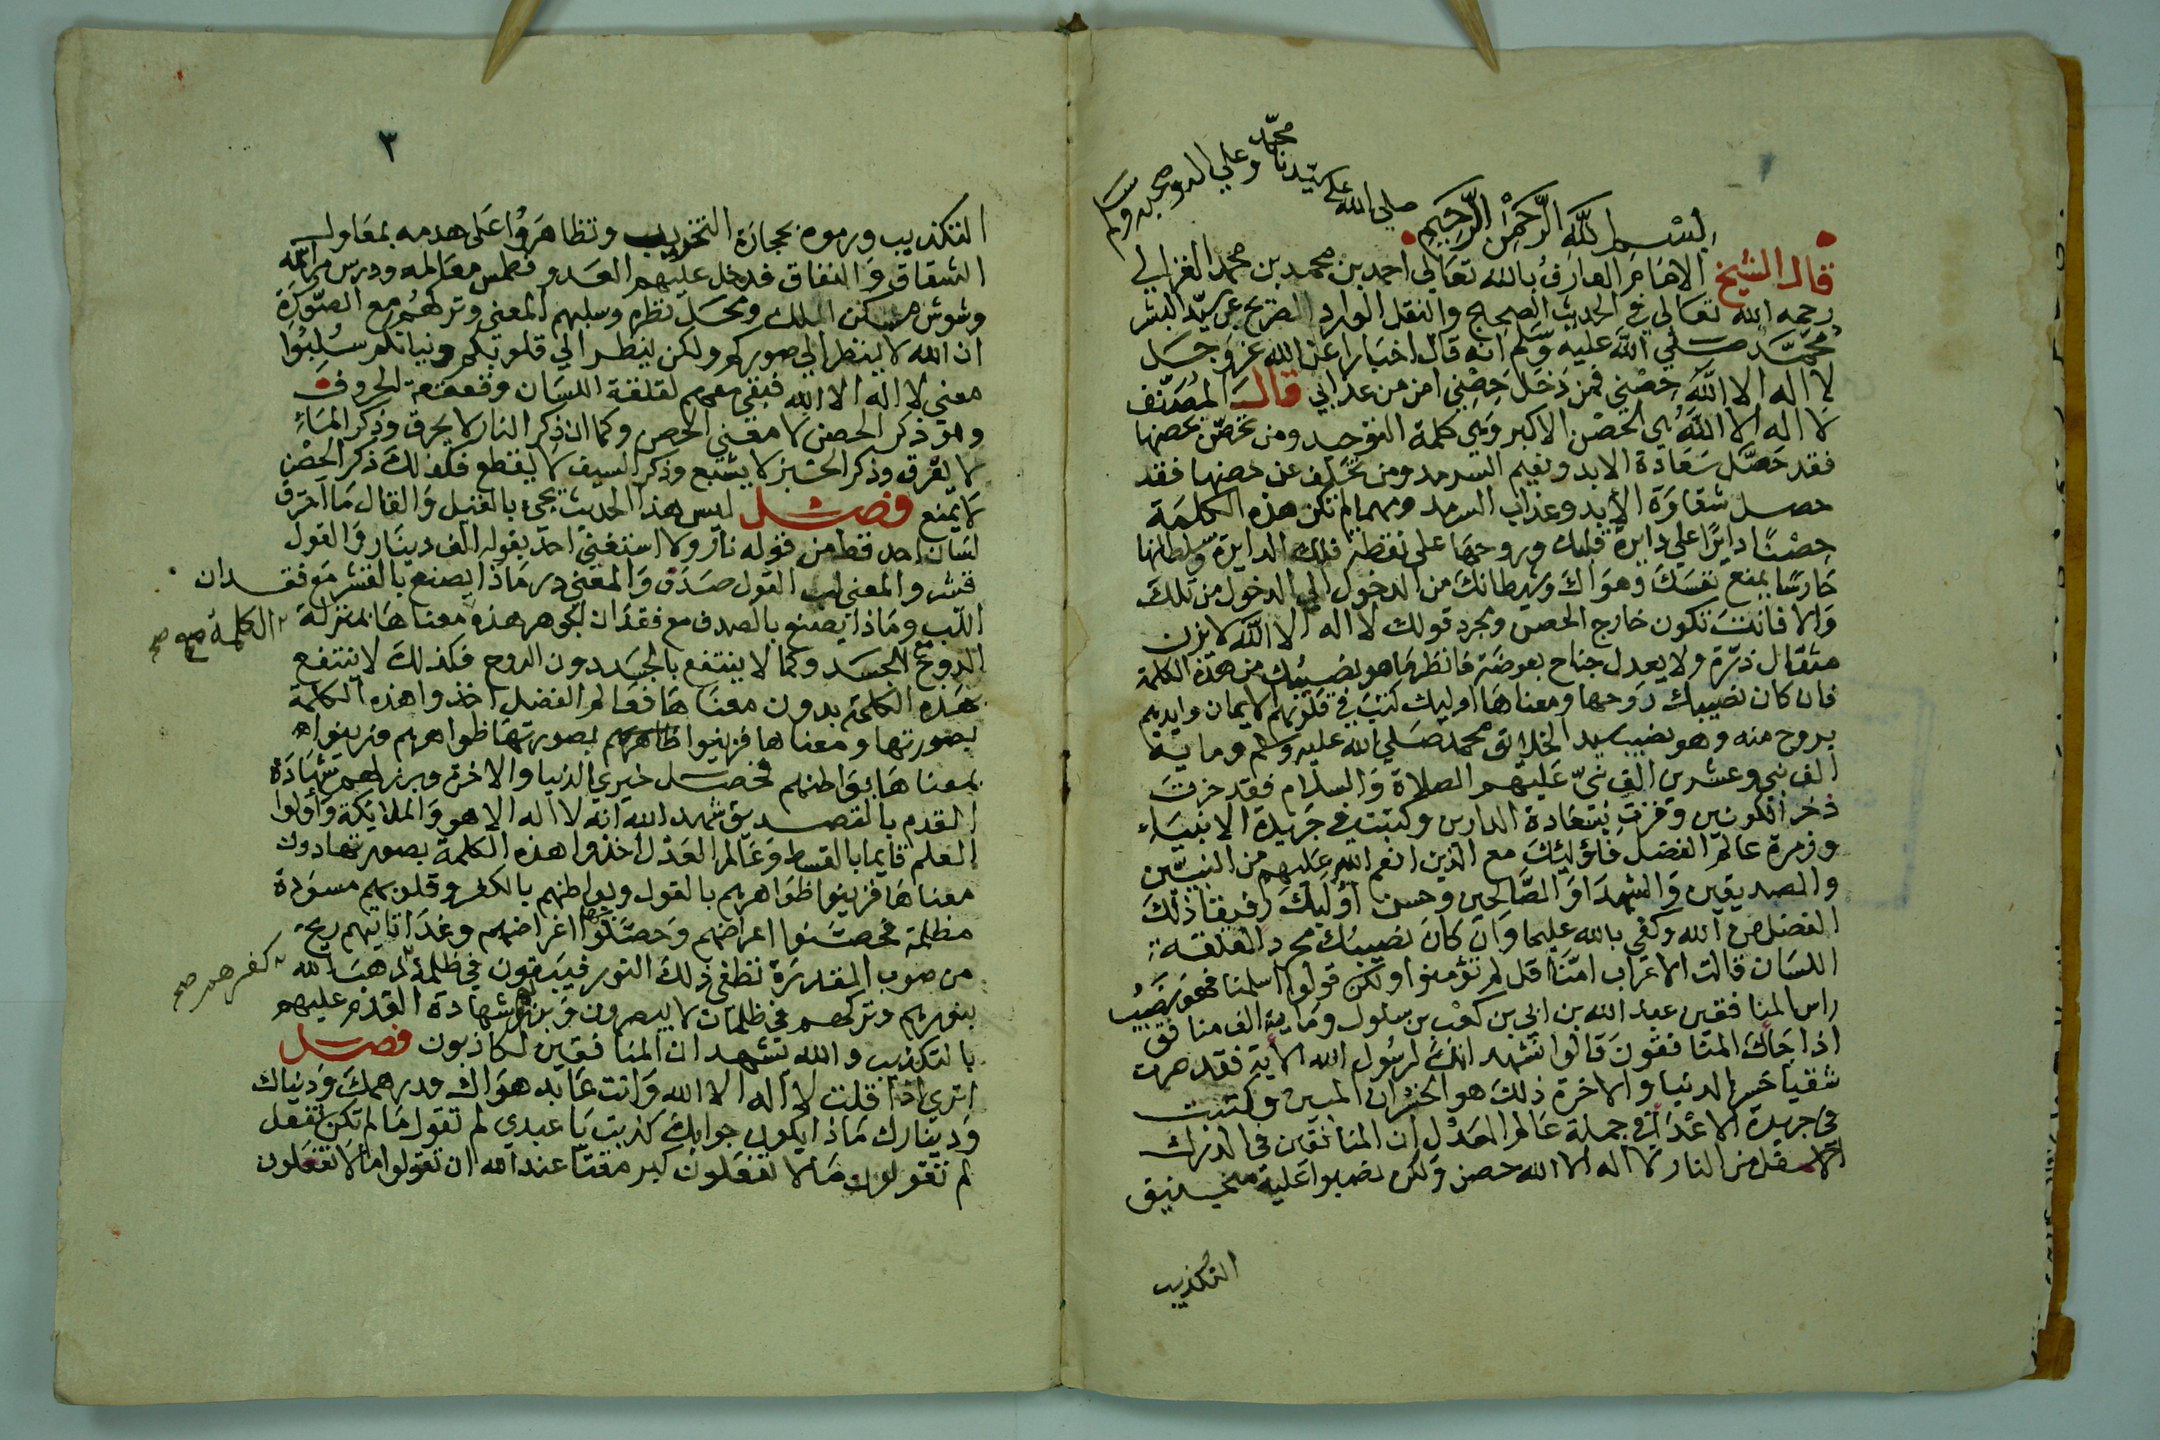 بسم الله الرحمن الرحيم صلي الله علي سيدنا محمد وعلي اله وصحبه وسلم
قال الشيخ الامام العارف بالله تعالي احمد بن محمد بن محمد الغزالي
رحمه الله تعالي في الحديث الصحيح والنقل الوارد الصريح عن سيد البشر
محمد صلي الله عليه وسلم انه قال اخبارا عن الله عز وجل
لا اله الا الله حصني فمن دخل حصني امن من عذابي قال المصنف
لا اله الا الله هي الحصن الاكبر وهي كلمة التوحيد ومن تحصن بحصنها
فقد حصل سعادة الابد ونعيم السرمد ومن تخلف عن حصنها فقد
حصل شقاوة الابد وعذاب السرمد ومهما لم تكن هذه الكلمة
حصنا دايرا علي دايرة قلبك وروحها علي نقطة تلك الدايرة وسلطانها
حارسا يمنع نفسك وهواك وشيطانك من الدخول الي الدخول من تلك
والا فانت تكون خارج الحصن ومجرد قولك لا اله الا الله لا يزن
مثقال ذرة ولا يعدل جناح بعوضة فانظر ما هو نصيبك من هذه الكلمة
فان كان نصيبك روحها ومعناها اوليك كتب في قلوبهم الايمان وايدهم
بروح منه وهو نصيب سيد الخلائق محمد صلي الله عليه وسلم وماية
الف نبي وعشرين الف نبي عليهم الصلاة والسلام فقد حزت
ذخر الكونين وفزت بسعادة الدارين وكتبت في جريدة الانبياء
وزمرة عالم الفضل فاولئك مع الذين انعم الله عليهم من النبيين
والصديقين والشهدا والصالحين وحسن أوليك رفيقا ذلك
الفضل من الله وكفي بالله عليما وان كان نصيبك مجرد القلقة
اللسان قالت الاعراب امنا قل لم تؤمنوا ولكن قولوا اسلمنا فهو نصيب
راس المنافقين عبد الله بن ابي بن كعب بن سلول وماية الف منافق
اذا جاك المنافقون قالوا نشهد انك لرسول الله الاية فقد صرت
شقيا خسر الدنيا والاخرة ذلك هو الخسران المبين وكتبت
في جريدة الاعدا في جملة عالم العدل ان المنافقين في الدرك
الاسفل من النار لا اله الا الله حصن ولكن نصبوا علية منجنيق
التكذيب
٣
التكذيب ورموه بحجارة التخريب وتظاهروا علي هدمه بمعاول
الشقاق والنفاق فدخل عليهم العدو فطمس معالمه ودرس مراسمه
وشوش مسكن الملك ومحل نظره وسلبهم المعني وتركهم مع الصورة
ان الله لا ينظر الي صوركم ولكن ينظر الي قلوبكم ونياتكم سلبوا
معني لا اله الا الله فبقي معهم لقلقة اللسان وقعقعة الحروف
وهو ذكر الحصن لا معني الحصن وكما ان ذكر النار لا يحرق وذكر الماء
لا يغرق وذكر الخبز لا يشبع وذكر السيف لا يقطع فكذلك ذكر الحصن
لا يمنع فصل ليس هذا الحديث يجيء بالقيل والقال ما احترق
لسان احد قط من قوله نار ولا استغني احد بقوله الف دينار والقول
قشر والمعني لب القول صدف والمعني در ماذا يصنع بالقشر مع فقدان
اللب وماذا يصنع بالصدف مع فقدان الجوهر هذه معناها بمنزلة الكلمة مع صح
الروح للجسد وكما لا ينتفع بالجسد دون الروح فكذلك لا ينتفع
بهذه الكلمة بدون معناها فعالم الفضل اخذوا هذه الكلمة
بصورتها ومعناها فزينوا ظاهرهم بصورتها ظواهرهم وزينوا
بمعناها بواطنهم فحصل خيري الدنيا والاخرة وبرز لهم شهادة
القدم بالتصديق شهد الله انه لا اله الا هو والملائكة وأولوا
العلم قايما بالقسط وعالم العدل اخذوا هذه الكلمة بصورتها دون
معناها فزينوا ظواهرهم بالقول وبواطنهم بالكفر وقلوبهم مسودة
مظلمة فحصنوا اعراضهم وحصلوا بها اغراضهم وغدا تاتيهم ريح
من صوب المقدرة تطفي ذلك النور فيبقون في ظلمة كفرهم صح ذهب الله
بنورهم وتركهم في ظلمات لا يبصرون وبرز لهم شهادة القدم عليهم
بالتكذيب والله يشهد ان المنافقين لكاذبون فصل
اتري اذا قلت لا اله الا الله وانت عابد هواك ودرهمك ودنياك
ودينارك ماذا يكون جوابك كذبت يا عبدي لم تقول ما لم تكن تفعل
لم تقولون ما لا تفعلون كبر مقتا عند الله ان تقولوا ما لا تفعلون